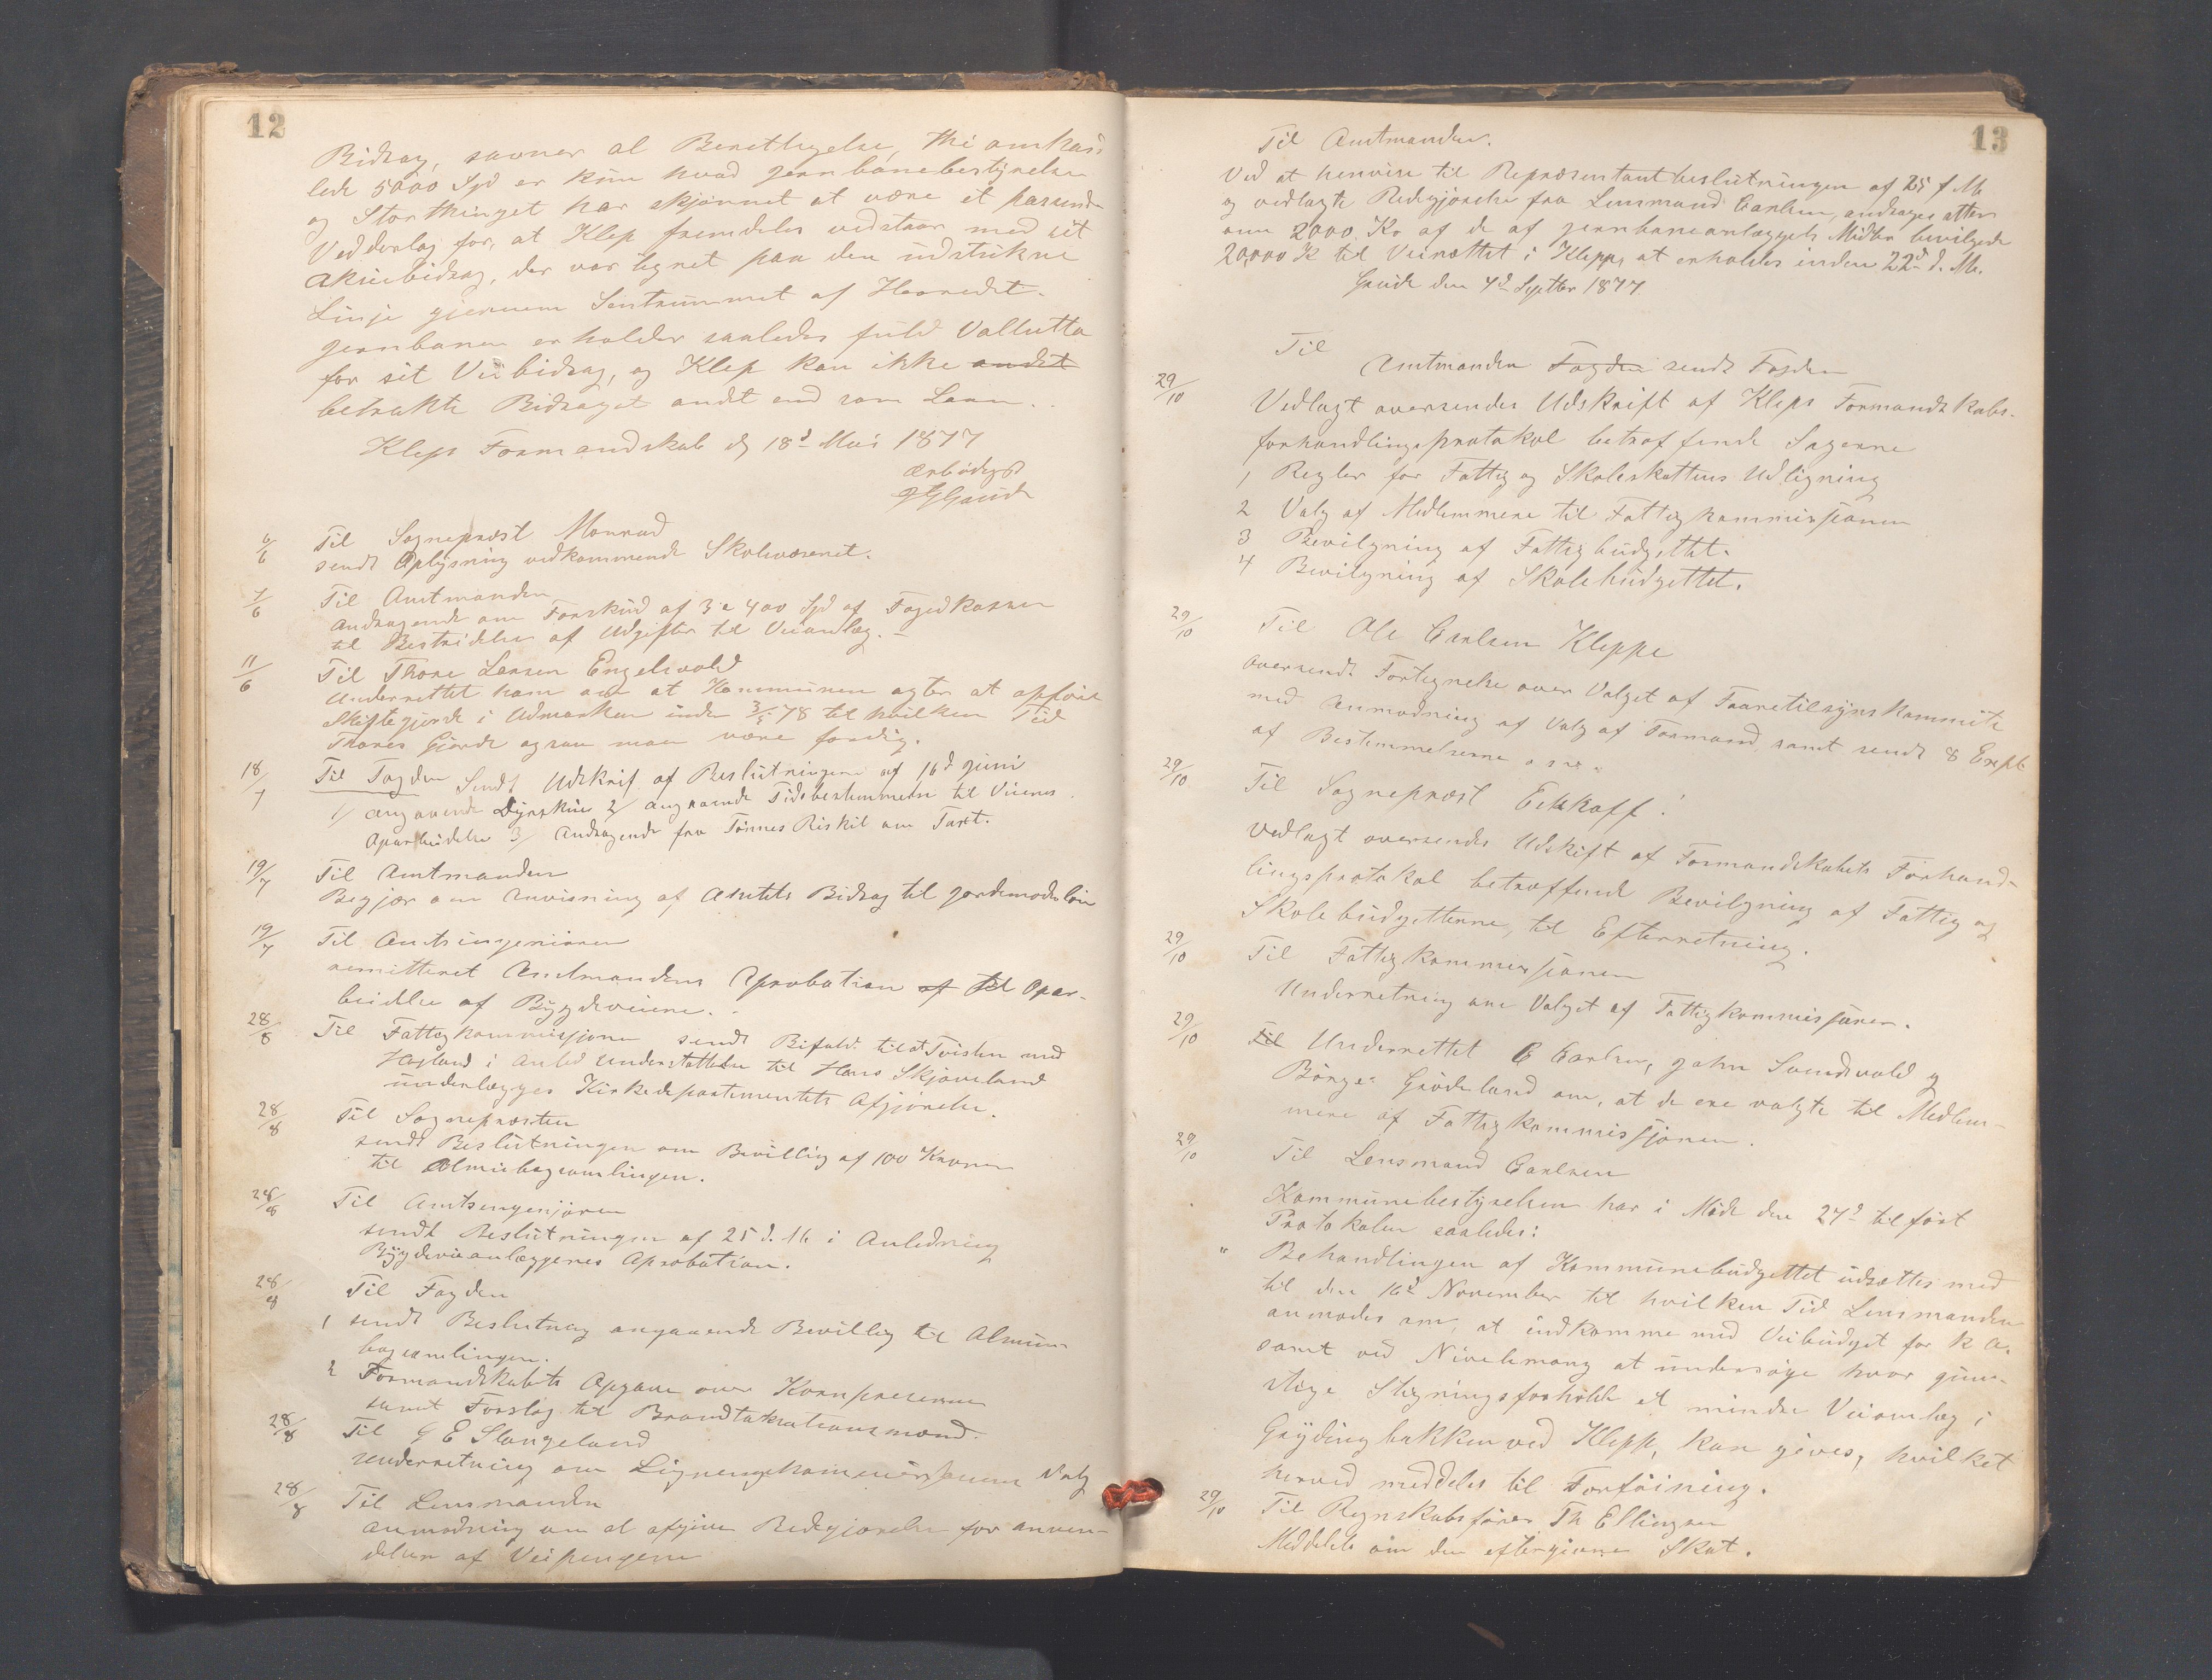 12
Bidrag, savner al Berettigelse, thi omhand-
lede 5000 Spd er kun hvad Jernbanebestyrelsen
og Storthinget har skjønnet at være et passende
Vedderlag for, at Klep fremdeles vedstaar med sit
Aktiebidrag, der var tegnet paa den udstukne
Linje gjennem Sentrummet af Herredet.
Jernbanen erholder saaledes fuld Vallutta
for sit Veibidrag, og Klep kan ikke andet
betrakte Bidraget andt end som Laan.
Kleps Formandskab d 18d Mai 1877
ærbødigst
Grude
6/6 Til Sogneprest Monrad
sendt Oplysning vedkommende Skolevæsenet.
7/6 Til Amtmanden
Andragende om Forskud af 3 a 400 Spd af Fogedkassen
til Bestridelse af Udgifter til Veianlæg.
11/6 Til Thore Larsen Engelsvold
Underrettet ham om at Kommunen agter at opføre
Skiftegjerde i Udmarken inden 3/5 78 til hvilken Tid
Thores Gjerde ogsaa maa være færdig.
18/7 Til Fogden Sendt Udskrift af Beslutningene af 16d Juni
1/ angaaende Dyrskue 2/ angaaende Tidsbestemmelse til Veienes
Oparbeidelse 3/ Andragende fra Tønnes Riskil om
19/7 Til Amtmanden
Begjær om Anvisning af Amtets Bidrag til Jordemoderløn
19/7 Til Amtsingeniøren
remitteret Amtmandens Aprobation af til Opar-
beidelse af Bygdeveiene.
28/8 Til Fattigkommissjonen sendt Bifald til at Tvisten med
Høiland i Anled Understøttelse til Hans Skjæveland
underlægges Kirkedepartementets Afgjørelse.
28/8 Til Sognepresten
sendt Beslutningen om Bevillig af 100 Kroner
til Almuebogsamlingen.
28/8 Til Amtsengenjøren
sendt Beslutningen af 25 d. M. i Anledning
Bygdeveianlæggenes Aprobation.
28/8 Til Fogden
1 sendt Beslutning angaaende Bevillig til Almue
bogsamlingen.
2 Formandskabets Opgave over Kornpriserne
samt Forslag til Brandtakstationsmænd.
28/8 Til G E Slangeland
underretning om Ligningskommissionens Valg
28/8 Til Lensmanden
anmodning om at afgive Redegjørelse for anven-
delsen af Veipengene
13
Til Amtmanden.
Ved at henvise til Repræsentantbeslutningen af 25 f M.
og vedlagte Redegjørelse fra Lensmand Carlsen, andrages atter
om 2000 Kr af de af Jernbaneanlæggets Midler bevilgede
20,000 K til Veinættet i Klepp, at erholdes inden 22d d. M.
Grude den 7d Septbr 1877.
Til
Amtmanden Fogden sendt Fogden
29/10 Vedlagt oversendes Udskrift af Kleps Formandskabs-
forhandlingsprotokol betræffende Sagerne
1 Regler for Fattig og Skoleskattens Udligning
2 Valg af Medlemmene til Fattigkommissjonen
3 Bevilgning af Fattigbudgettet.
4 Bevilgning af Skolebudgettet.
29/10 Til Ole Carlsen Kleppe
oversendt Fortegnelse over Valget af Faaretilsynskommite
med Anmodning af Valg af Formand samt sendt 8 Expl
af Bestemmelserne
29/10 Til Sogneprest Eckhoff!
Vedlagt oversendes Udskift af Formandskabets Forhand-
lingsprotokol betræffende Bevilgning af Fattig og
Skolebudgetterne, til Efterretning.
29/10 Til Fattigkommissjonen
Underretning om Valget af Fattigkommissjonen.
29/10 Til Underrettet C Carlsen, John Sandvold og
Børge Grødeland om, at de ere valgte til Medlem-
mene af Fattigkommissjonen.
29/10 Til Lensmand Carlsen
Kommunebestyrelsen har i Møde den 27d tilført
Protokolen saaledes:
" Behandlingen af Kommunebudgettet udsættes med
til den 16d November til hvilken Tid Lensmanden
anmodes om, at indkomme med Veibudget for k A.
samt ved Nivelemang at undersøge hvor gun-
stige Stigningsforholde et mindre Veiomlæg i
Grydingbakken ved Klepp, kan gives, hvilket
herved meddeles til Forføining.
29/10 Til Regnskabsfører Th Ellingsen
Meddelele om den eftergivne Skat.